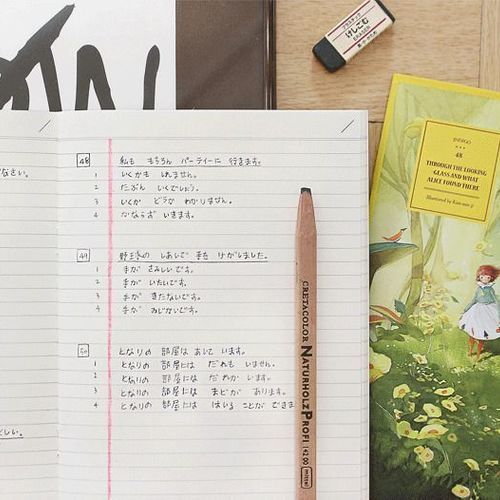 プラスチック
けしごむ
ERASER
INDIGO
48
THROUGH THE LOOKING
GLASS AND WHAT
ALICE FOUND THERE
Illustrated by Kim min ji
48 私も もちろん パーティーに 行きます。
1 いくかも しれません。
2 たぶん いくでしょう。
3 いくか どうか わかりません。
4 かならず いきます。
49 野球の しあいで 手を けがしました。
1 手が さみしいです。
2 手が いたいです。
3 手が きたないです。
4 手が みじかいです。
50 となりの 部屋は あいて います。
1 となりの 部屋には だれも いません。
2 となりの 部屋には だれか います。
3 となりの 部屋には まどが あります。
4 となりの 部屋には はいる ことが できま
CRETACOLOR NATURHOLZPROFI 142 00